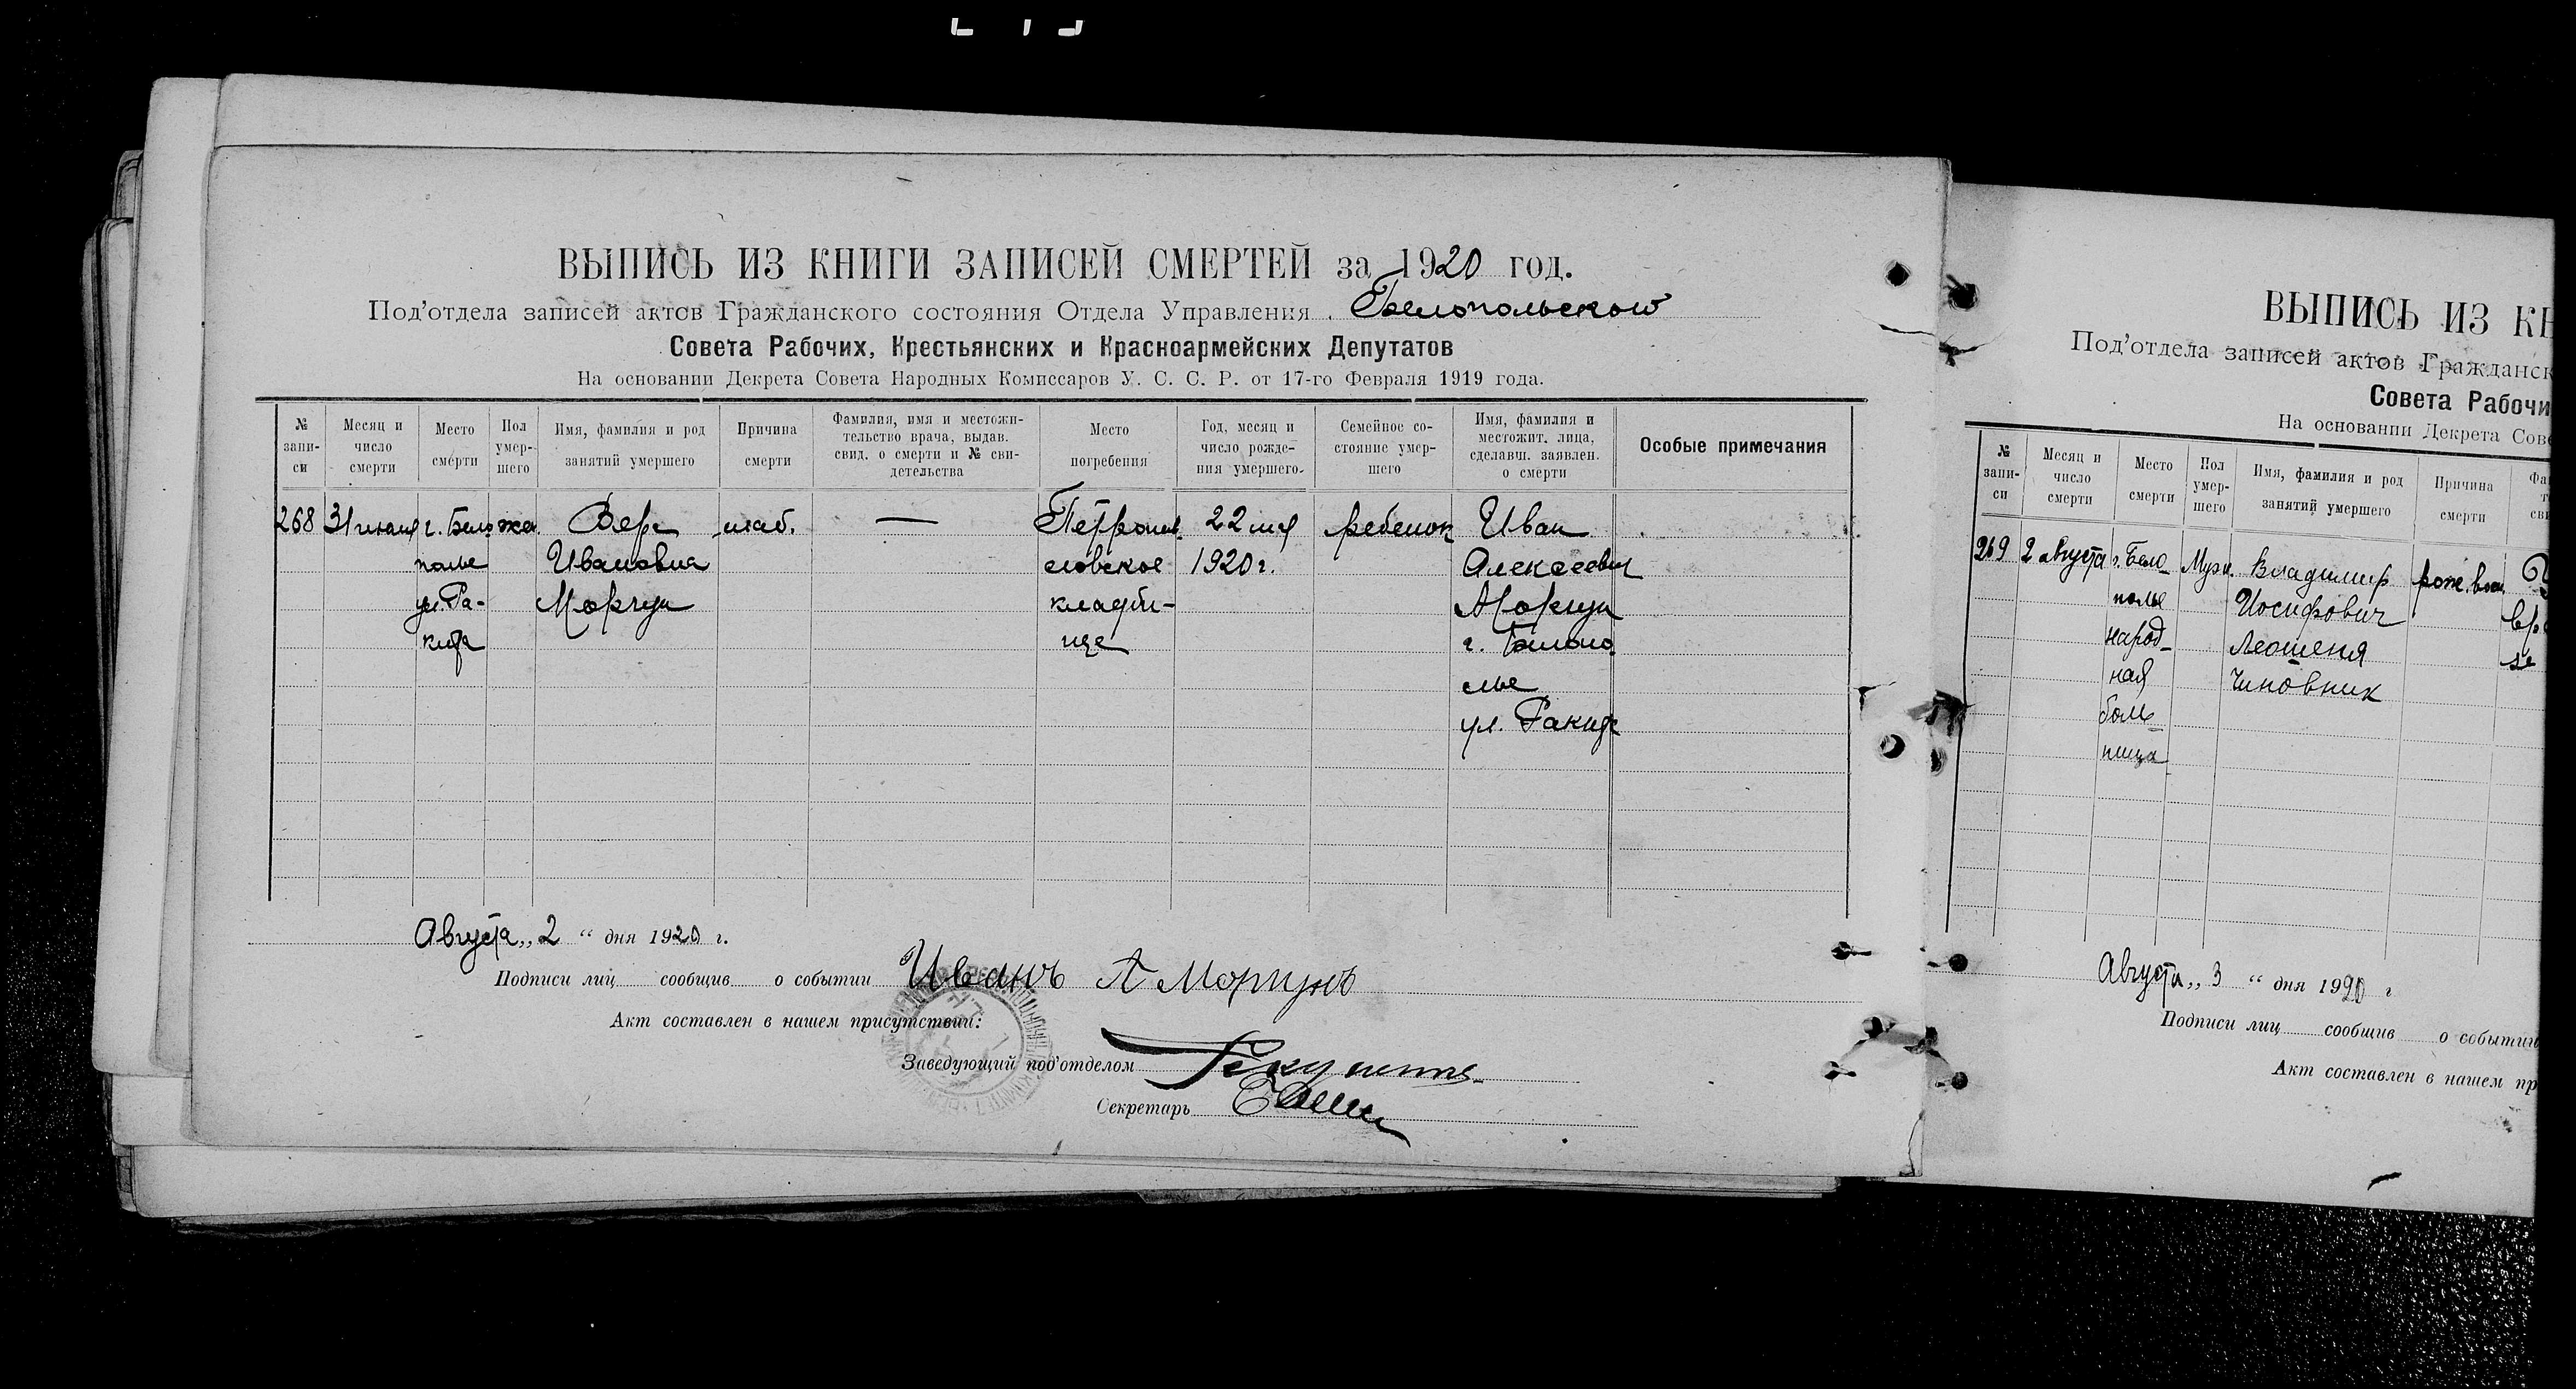 ВЫПИСЬ ИЗ КНИГИ ЗАПИСЕЙ СМЕРТЕЙ за 1920 год.
Под'отдела записей актов Гражданского состояния Отдела Управления Белопольского
Совета Рабочих, Крестьянских и Красноармейских Депутатов
На основании Декрета Совета Народных Комиссаров У. С. С. Р. от 17-го Февраля 1919 года.
№ запи-си
Месяц и число смерти
Место смерти
Пол умер-шего
Имя, фамилия и род занятий умершего
Причина смерти
Фамилия, имя и местожи-тельство врача, выдав. свид. о смерти и № сви-детельства
Место погребения
Год, месяц и число рожде-ния умершего.
Семейное со-стояние умер-шего
Имя, фамилия и местожит. лица, сделавш. заявлен. о смерти
Особые примечания
268
г. Бело
полье
ул. Ра-
жен.
Вера
Ивановна
Моргун
—
Петропав
ловское
кладби-
ще
1920 г.
ребенок
Иван
Алексеевич
Моргун
г. Белопо
лье
ул.
Августа „2“ дня 1920 г.
Подписи лиц сообщив о событии Иванъ А Моргунъ
Акт составлен в нашем присутствии:
Заведующий под'отделом
Секретарь
ВЫПИСЬ ИЗ КН
Под'отдела записей актов Гражданск
Совета Рабочи
На основании Декрета Сове
№ запи-си
Месяц и число смерти
Место смерти
Пол умер-шего
Имя, фамилия и род занятий умершего
Причина смерти
269
2 августа
г. Бело
полье
народ-
ная
боль
ница
Муж.
Владимир
Иосифович
Леошеня
Чиновник
рож.
Августа „3“ дня 1920 г
Подписи лиц сообщив о событии
Акт составлен в нашем пр